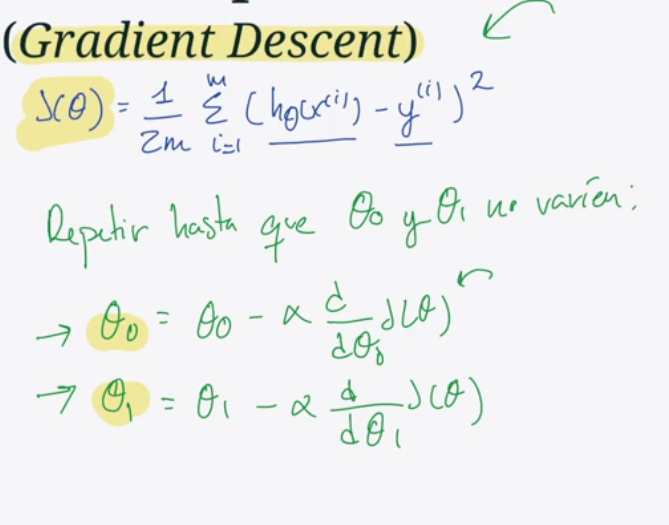 (Gradient Descent)
J(θ) = 1/2m Σ i=1 m (hθ(x⁽ⁱ⁾) - y⁽ⁱ⁾)²
Repetir hasta que θ₀ y θ₁ no varíen:
→ θ₀ = θ₀ - α d/dθ₀ J(θ)
→ θ₁ = θ₁ - α d/dθ₁ J(θ)